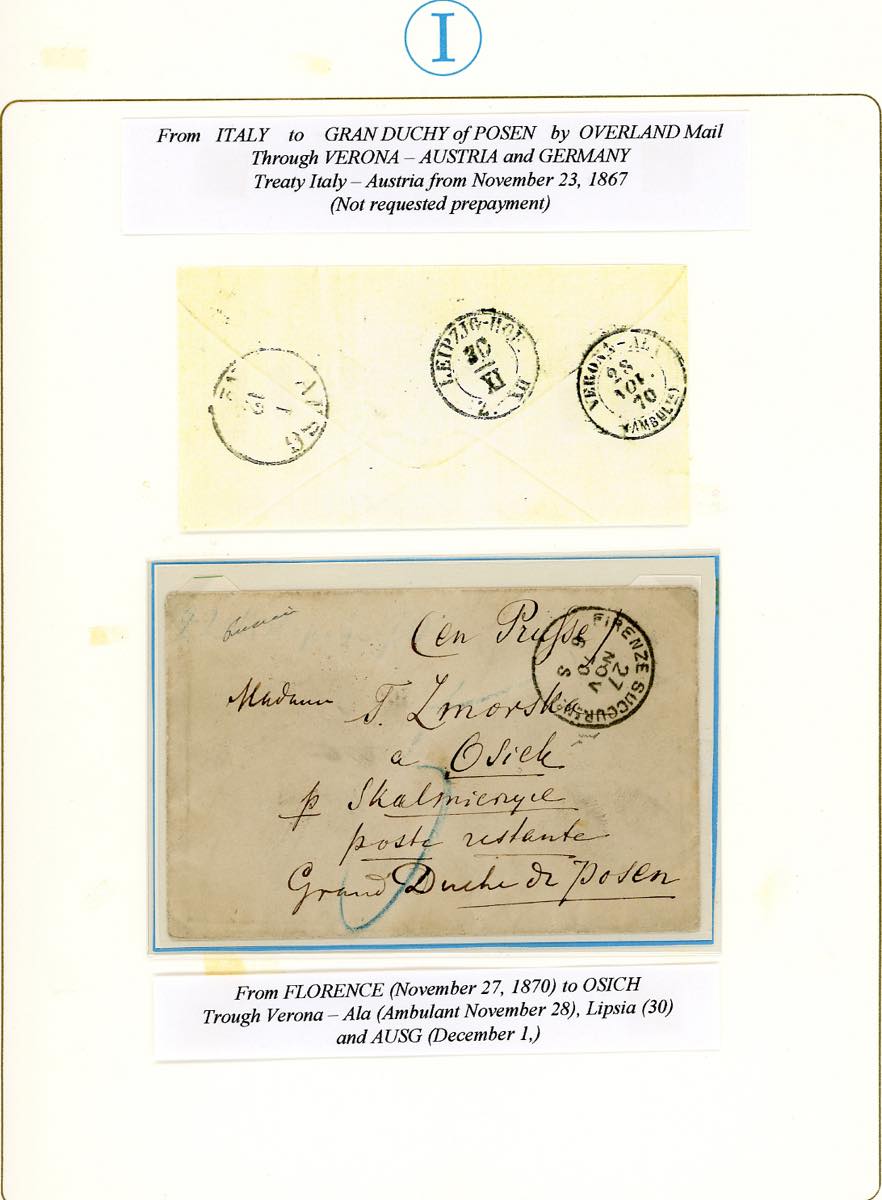 I
From ITALY to GRAN DUCHY of POSEN by OVERLAND Mail
Through VERONA – AUSTRIA and GERMANY
Treaty Italy – Austria from November 23, 1867
(Not requested prepayment)
AUSG
1
LEIPZIG-HOF
30
XI
2.
VERONA-ALA
28
NOV.
70
(AMBUL)
(en Prusse)
FIRENZE SUCCURS
27
NOV
70
S
Madame T. Zmorska
a Osiek
p Skalmierzyce
poste restante
Grand Duche de Posen
From FLORENCE (November 27, 1870) to OSICH
Trough Verona – Ala (Ambulant November 28), Lipsia (30)
and AUSG (December 1,)